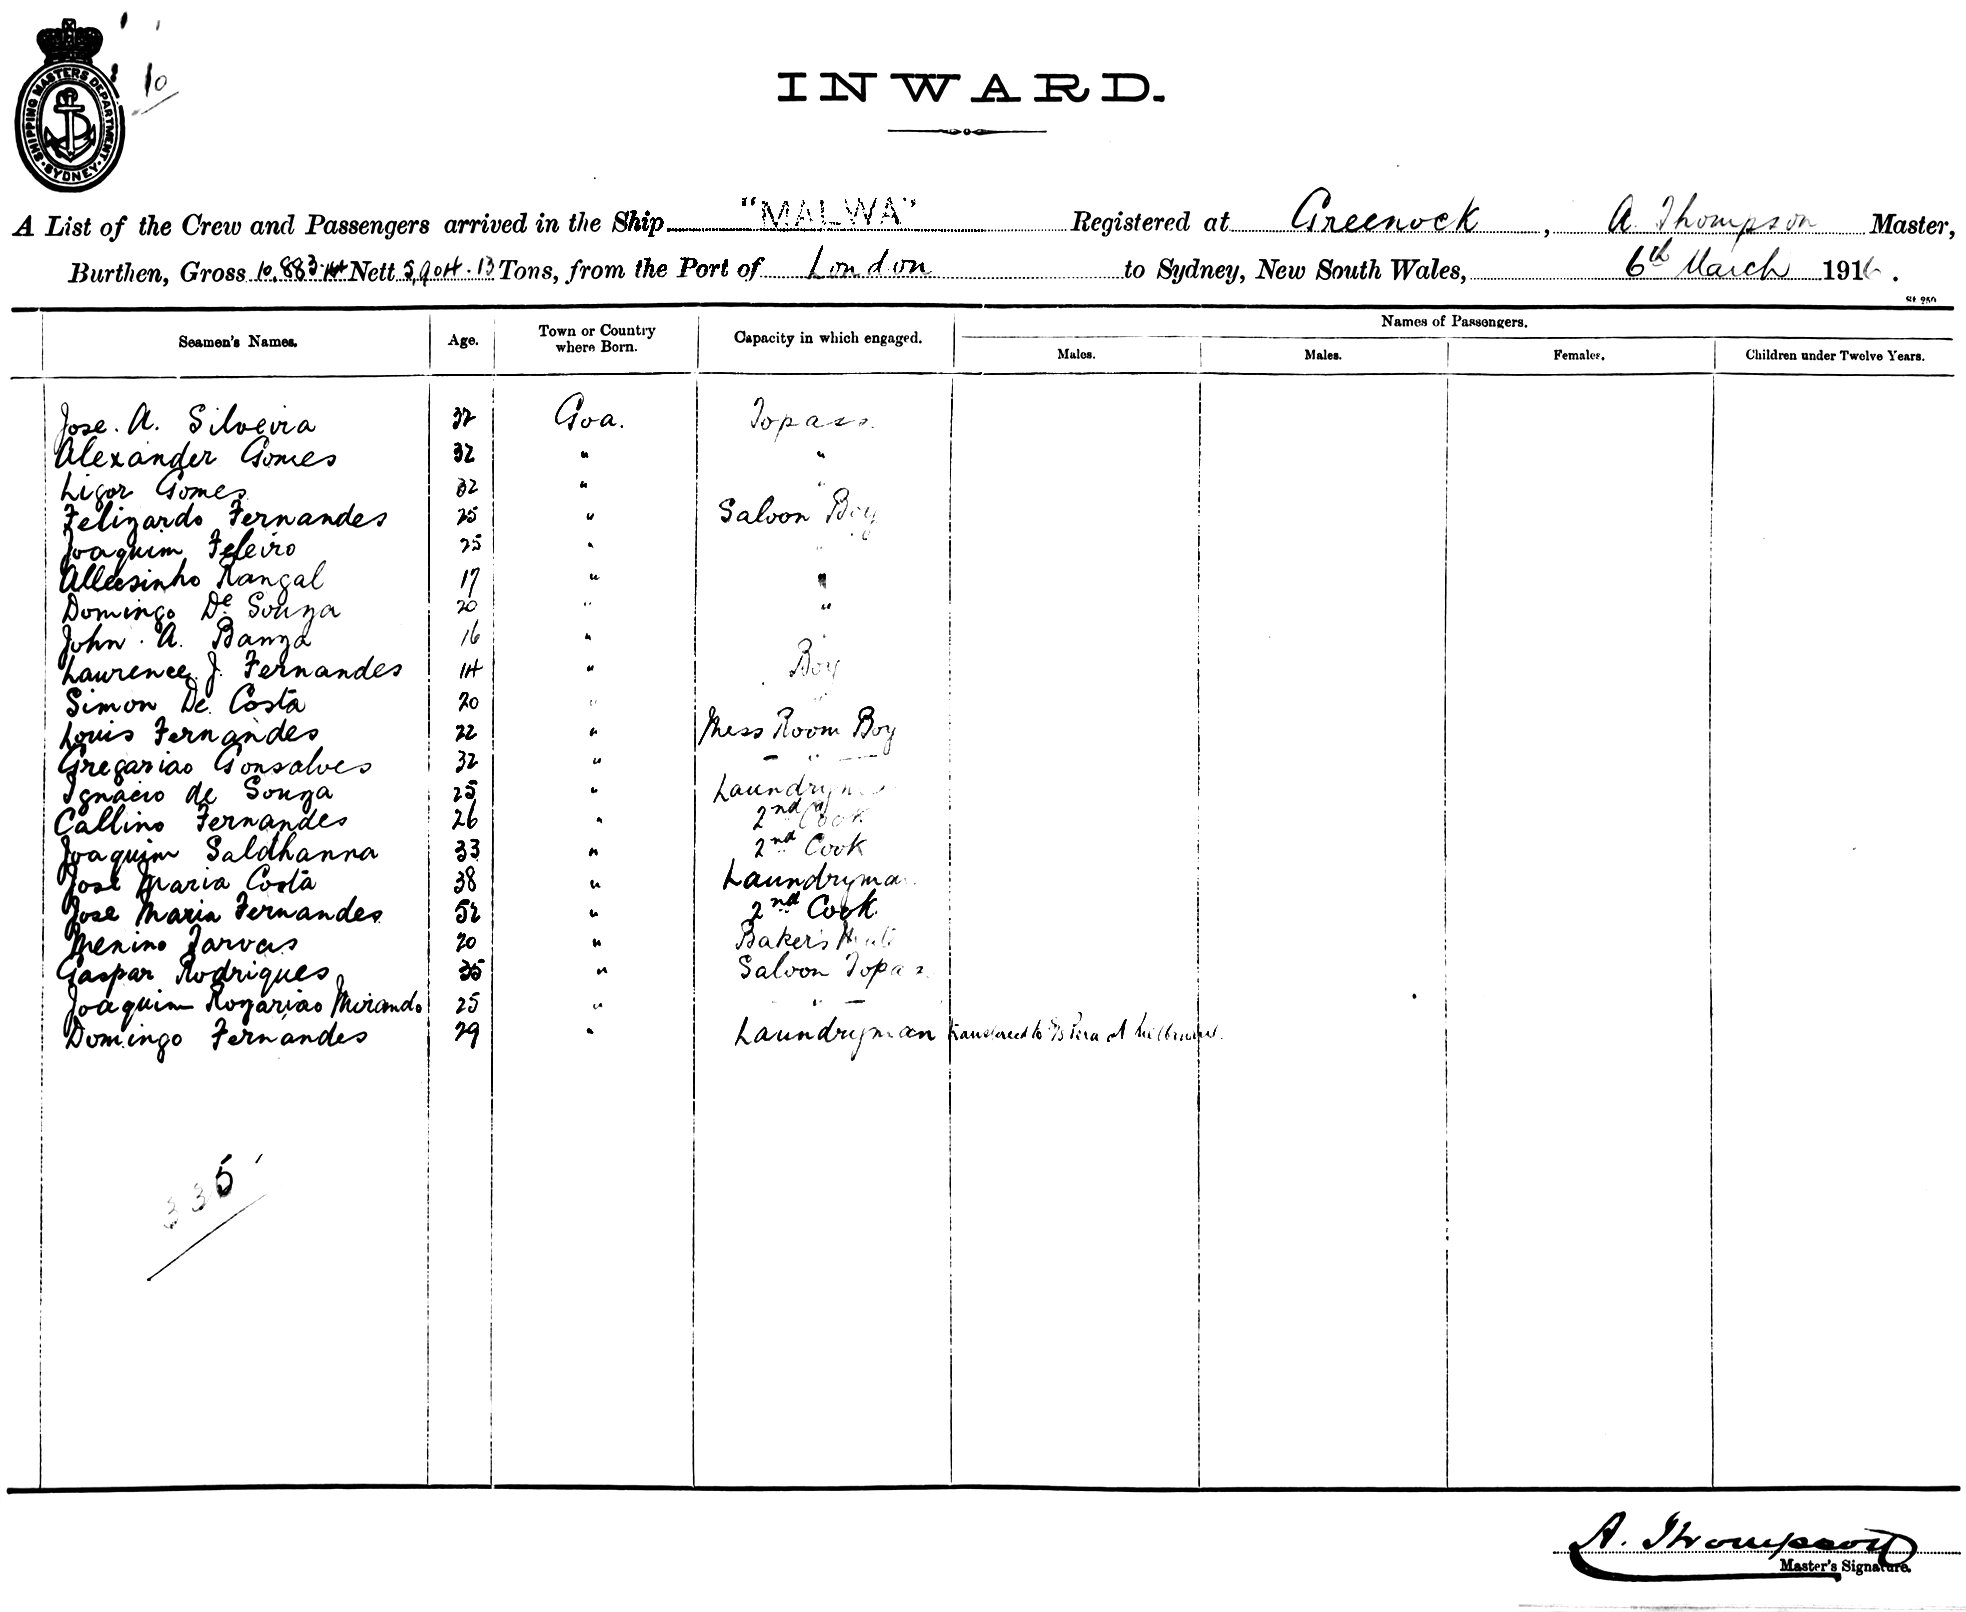 10
SHIPPING MASTERS DEPARTMENT
SYDNEY
INWARD.
A List of the Crew and Passengers arrived in the Ship "MALWA" Registered at Greenock, A. Thompson Master,
Burthen, Gross 10,883.14 Nett 5,904.13 Tons, from the Port of London to Sydney, New South Wales, 6th March 1916.
St 250
Names of Passengers.
Seamen's Names. Age. Town or Country where Born. Capacity in which engaged. Males. Males. Females. Children under Twelve Years.
Jose. A. Silveira 32 Goa. Topass.
Alexander Gomes 32 " "
Ligor Gomes 32 " "
Felizardo Fernandes 25 " Saloon Boy
Joaquim Feleiro 25 " "
Rangal 17 " "
Domingo De Souza 20 " "
John. A. Banza 16 " "
Laurence J. Fernandes 14 " Boy
Simon De Costa 20 " "
Louis Fernandes 22 " Mess Room Boy
Gregariao Gonsalves 32 " "
Ignacio de Souza 25 " Laundryman
Callino Fernandes 26 " 2nd Cook
Joaquim Saldhanna 33 " 2nd Cook
Jose Maria Costa 38 " Laundryman
Jose Maria Fernandes 52 " 2nd Cook
Menino 20 " Baker's
Gaspar Rodrigues 35 " Saloon Topas
Joaquim Rogariao Mirando 25 " "
Domingo Fernandes 29 " Laundryman transferred to S/S Pera at Melbourne.
335
A. Thompson
Master's Signature.